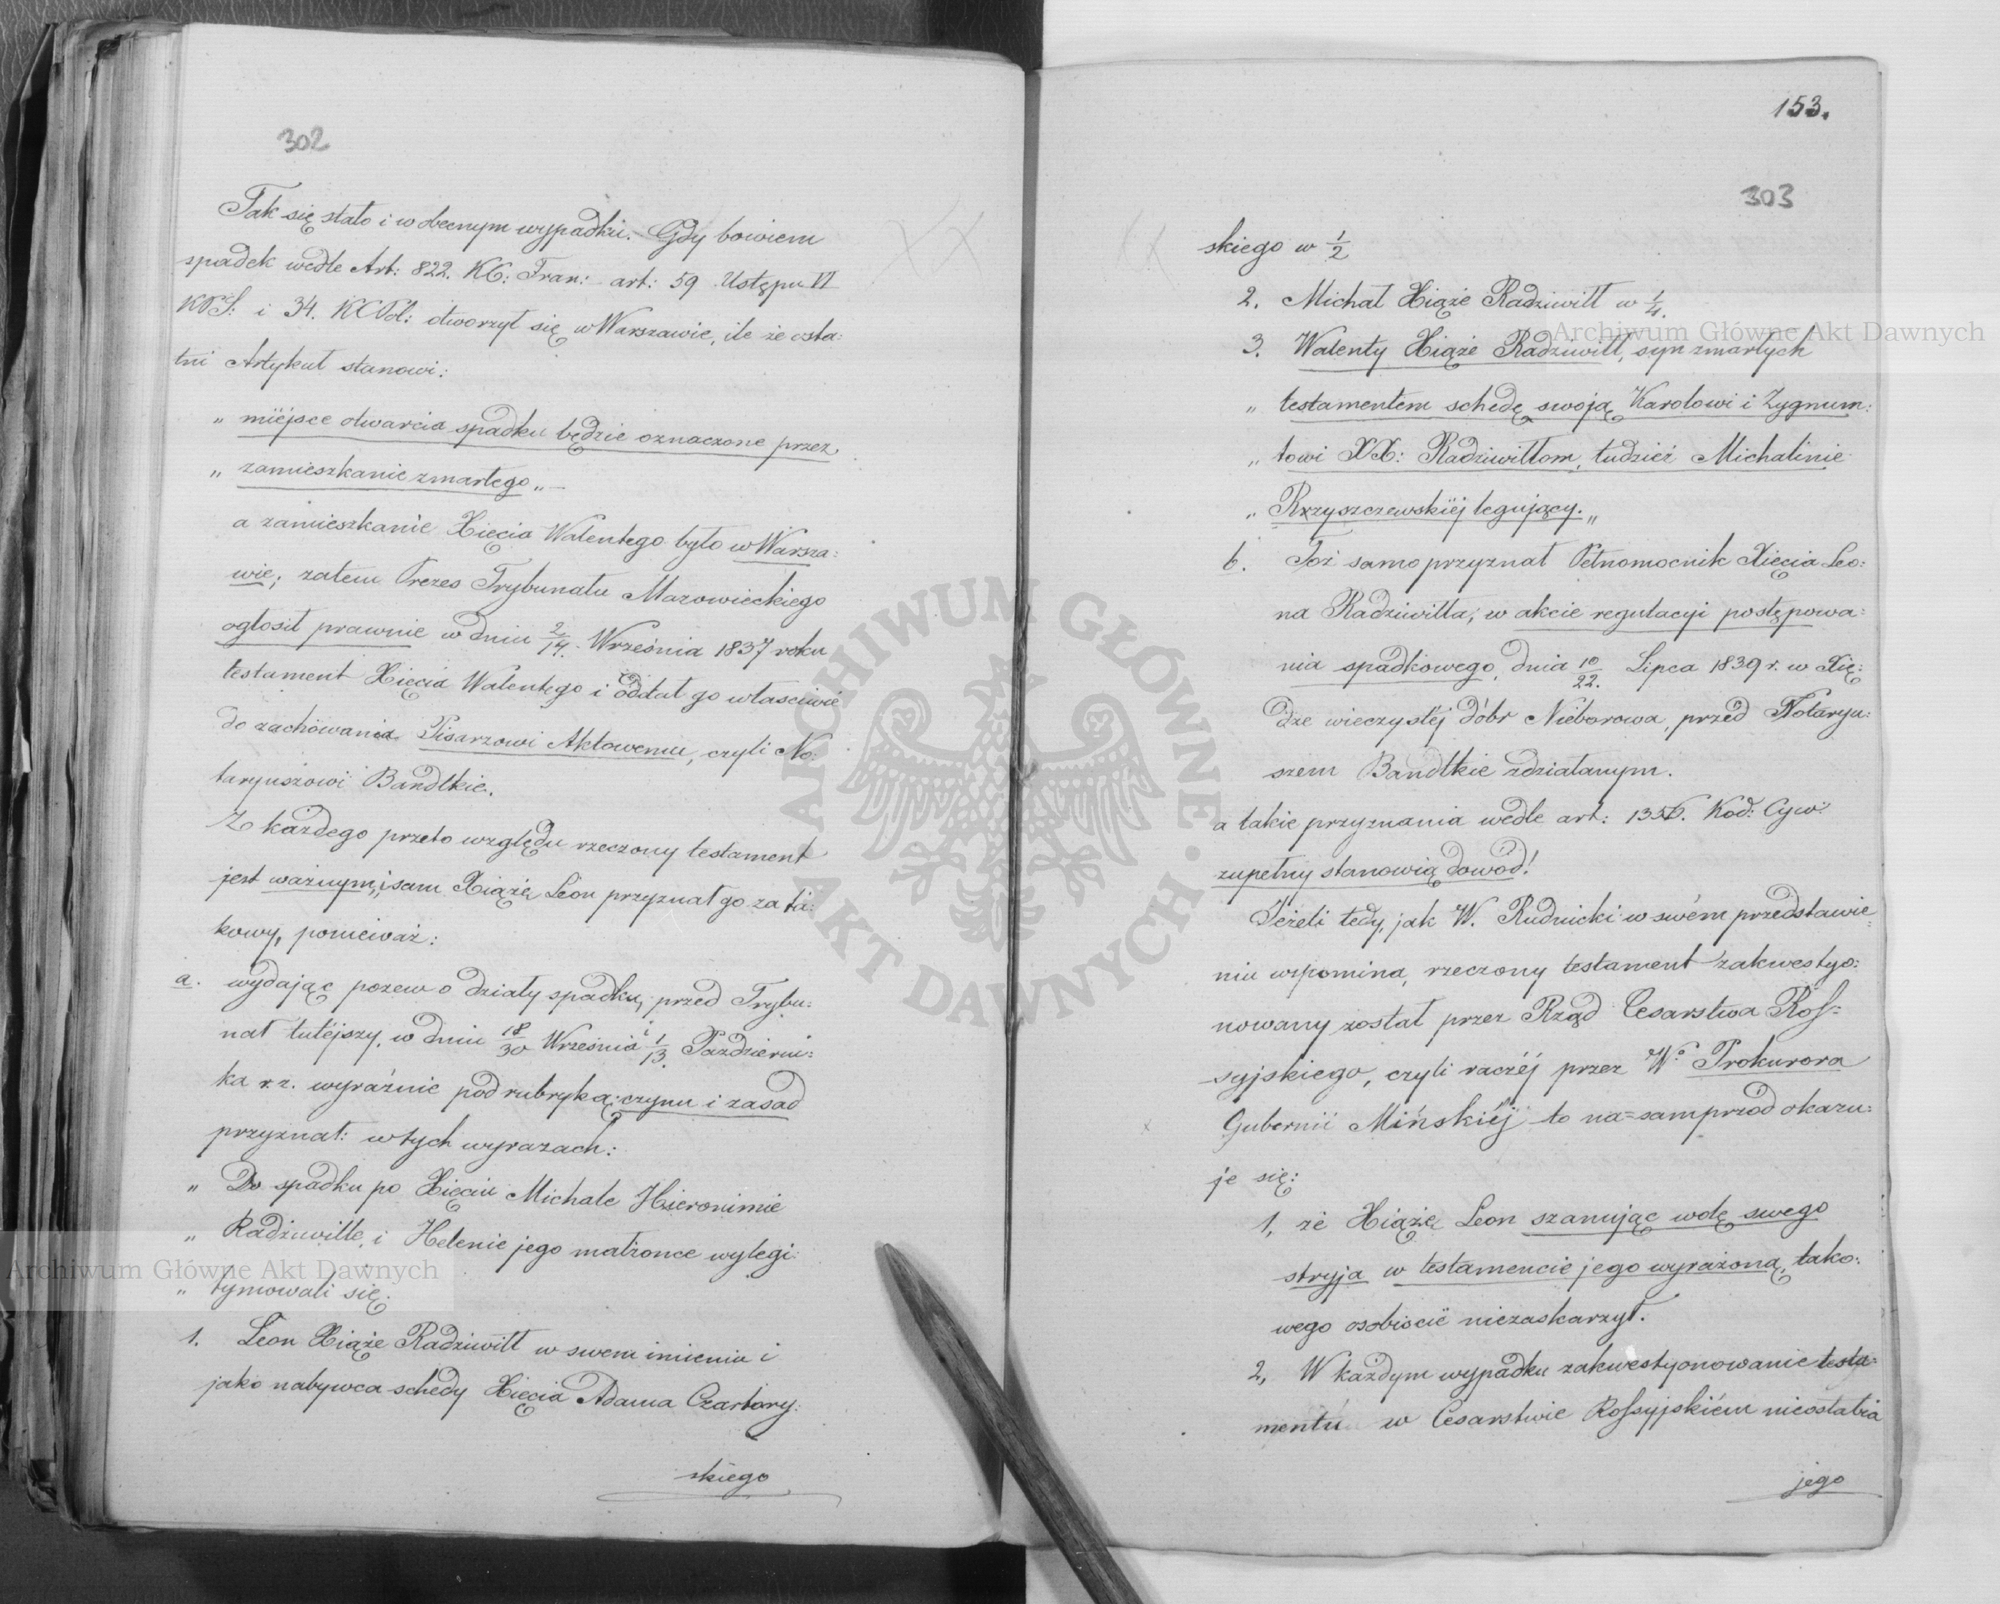 302
Tak się stało i w obecnym wypadku. Gdy bowiem
spadek wedle Art: 822. KC: Fran: art: 59 Ustępu VI
KPS: i 34. KCPol: otworzył się w Warszawie, ile że osta:
tni Artykuł stanowi:
„ miéjsce otwarcia spadku będzie oznaczone przez
„ zamieszkanie zmarłego „ —
a zamieszkanie Xięcia Walentego było w Warsza:
wie; zatem Prezes Trybunału Mazowieckiego
ogłosił prawnie w dniu 2/14. Września 1837 roku
testament Xięcia Walentego i oddał go właściwie
do zachowania Pisarzowi Aktowemu, czyli No:
taryuszowi Bandtkie.
Z każdego przeto względu rzeczony testament
jest ważnym, i sam Xiąże Leon przyznał go za ta:
kowy, ponieważ:
a. wydając pozew o działy spadku, przed Trybu:
nał tutéjszy, w dniu 18/30 Września i 1/13. Październi:
ka r. z. wyraźnie pod rubryką: czynu i zasad
przyznał: w tych wyrazach:
„ Do spadku po Xięciu Michale Hieronimie
„ Radziwille, i Helenie jego małżonce wylegi:
„ tymowali się.
1. Leon Xiąże Radziwiłł w swem imieniu i
jako nabywca schedy Xięcia Adama Czartory:
skiego
153.
303
skiego w 1/2
2. Michał Xiąże Radziwiłł w 1/4.
3. Walenty Xiąże Radziwiłł, syn zmarłych
„ testamentem schedę swoją Karolowi i Zygmun:
„ towi XX: Radziwiłłom, tudzież Michalinie
„ Rzyszczewskiéj legujący. „
b. Toż samo przyznał Pełnomocnik Xięcia Leo:
na Radziwiłła; w akcie regulacyi postępowa:
nia spadkowego, dnia 10/22. Lipca 1839 r. w Xię:
dze wieczystéj dóbr Nieborowa, przed Notaryu:
szem Bandtkie zdziałanym.
a takie przyznania wedle art: 1356. Kod: Cyw:
zupełny stanowią dowód!
Jeżeli tedy, jak W. Rudnicki w swém przedstawie:
niu wspomina, rzeczony testament zakwestyo:
nowany został przez Rząd Cesarstwa Ros:
syjskiego, czyli raczéj przez Wo Prokurora
Gubernii Mińskiéj to na=samprzod okazu:
je się:
1, że Xiąże Leon szanując wolę swego
stryja w testamencie jego wyrażoną, tako:
wego osobiście niezaskarzył.
2, W każdym wypadku zakwestyonowanie testa:
mentu w Cesarstwie Rossyjskiém nieosłabia
jego
Archiwum Główne Akt Dawnych
Archiwum Główne Akt Dawnych
ARCHIWUM GŁÓWNE · AKT DAWNYCH ·